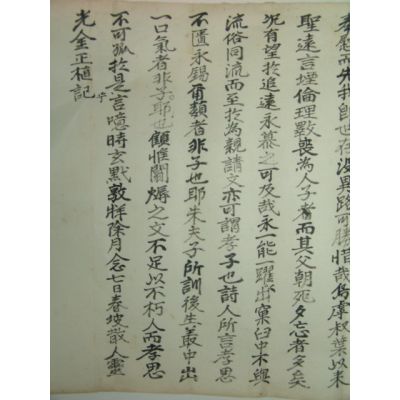 慰而先我卽世存没異路可勝惜哉烏虖叔葉以来
聖遠言堙倫理斁喪為人子者而其父朝死夕忘者多矣
况有望於追遠永慕之可及哉永一能一躍出窠臼中不與
流俗同流而至於為親請文亦可謂孝子也詩人所言孝思
不匱永錫爾類者非子也耶朱夫子所訓後生叢中出
一口氣者非子耶也顧惟爝之文不足以不朽人而孝思
不可孤於是乎言噫時玄黓敦牂除月念七日春坡散人靈
光金正植記